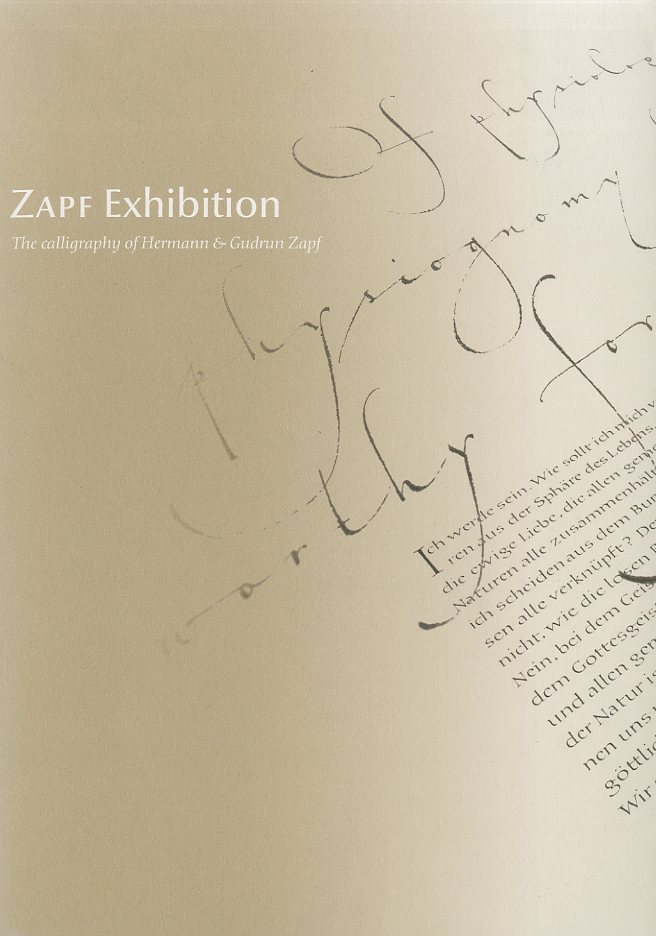 ZAPF Exhibition
The calligraphy of Hermann & Gudrun Zapf
Of physiolog
physiognomy
worthy for
Ich werde sein. Wie sollt ich mich v
ren aus der Sphäre des Lebens,
die ewige Liebe, die allen geme
Naturen alle zusammenhält
ich scheiden aus dem Bun
sen alle verknüpft? De
nicht, wie die losen B
Nein, bei dem Geis
dem Gottesgeis
und allen gem
der Natur is
nen uns
göttlic
Wir